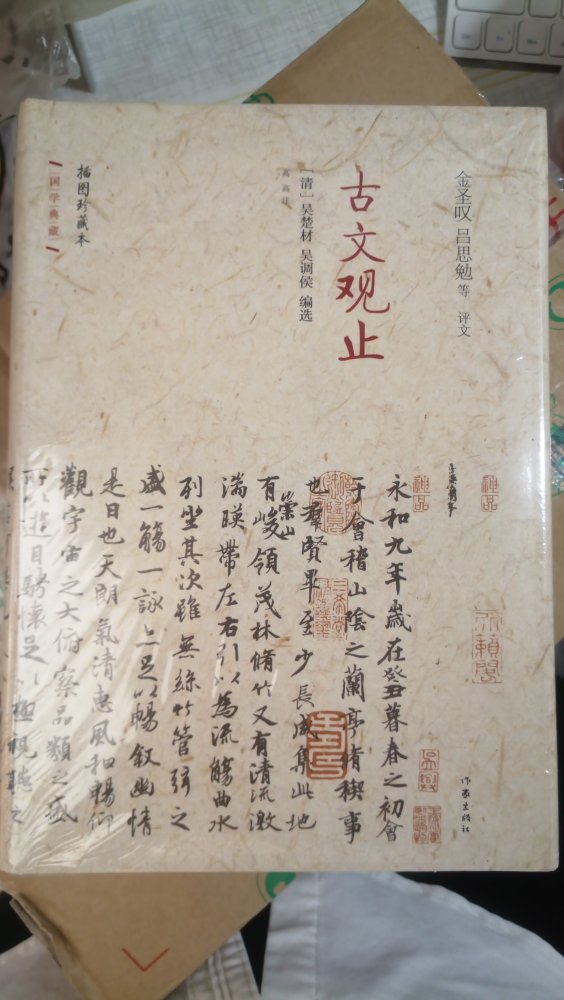 金圣叹 吕思勉 等 评文
古文观止
[清] 吴楚材 吴调侯 编选
插图珍藏本
国学典藏
神品
神品
永和九年歲在癸丑暮春之初會
于會稽山陰之蘭亭脩稧事
也羣賢畢至少長咸集此地
有崇山峻領茂林脩竹又有清流激
湍暎帶左右引以為流觴曲水
列坐其次雖無絲竹管弦之
盛一觴一詠亦足以暢叙幽情
是日也天朗氣清惠風和暢仰
觀宇宙之大俯察品類之盛
所以遊目騁懷足以極視聽之
作家出版社